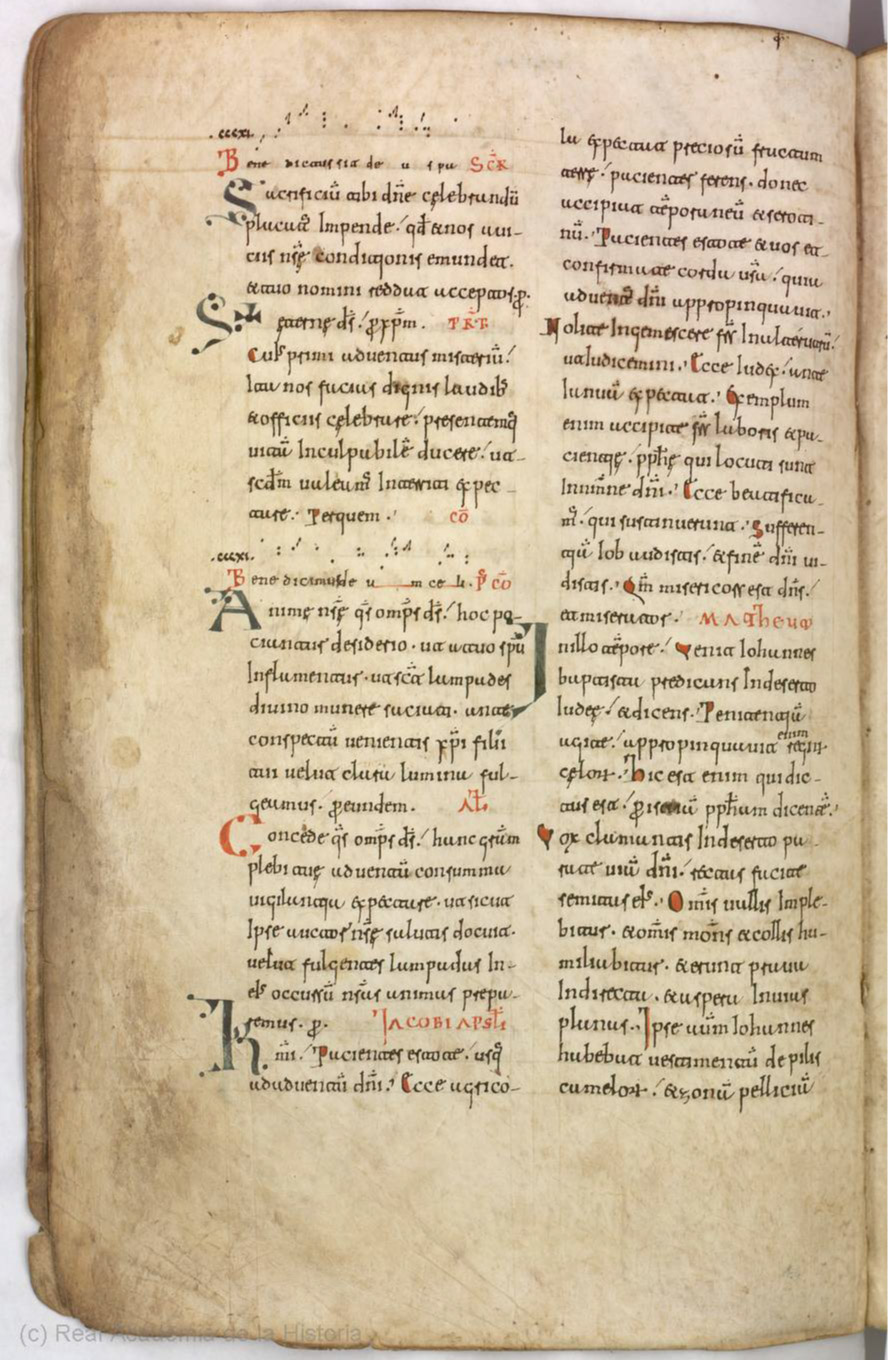 Sacrificiū tibi dn̄e cęlebrandū
placatꝰ Impende / qd̄ & nos a ui-
ciis nr̄ę condicionis emundet.
& tuo nomini reddat acceptos. ꝑ.
eterne ds̄ / ꝑ xp̄m.
Cuiꝰ primi aduentus misteriū /
Ita nos facias dignis laudibꝫ
& officiis cęlebrare / presentemqꝫ
uitā Inculpabilē ducere / ut
scd̄m ualeamꝰ Interriti exspec-
tare. Perquem. cō
Anime nr̄ę qs̄ omp̄s ds̄ / hoc po-
ciantur desiderio. ut a tuo spū
Inflamentur. ut scā lampades
diuino munere saciati. ante
conspectū uenientis xp̄i filii
tui uelut clara lumina ful-
geamus. ꝑ eundem.
Concede qs̄ omp̄s ds̄ / hanc grām
plebi tuę aduentū consumma
uigilantia exspectare. ut sicut
Ipse auctor nr̄ę salutis docuit.
uelut fulgentes lampadas In
eiꝰ occursū nr̄as animas prepa-
remus. ꝑ. IACOBI APSLI
Kmi. Pacientes estote / usqꝫ
ad aduentū dn̄i. Ecce agrico-
la exspectat preciosū fructum
terrę / pacienter ferens. donec
accipiat tēporaneū & seroti-
nū. Pacientes estote & uos et
confirmate corda ur̄a / quia
aduentꝰ dn̄i appropinquauit.
Nolite Ingemescere frs̄ In alterutrū /
ut Iudicemini. Ecce Iudex / ante
Ianuā exspectat. Exemplum
enim accipite frs̄ laboris & pa-
cientię / pph̄ę qui locuti sunt
In nomn̄e dn̄i. Ecce beatifica-
mꝰ. qui sustinuerunt. Sufferen-
tiā Iob audistis / & finē dn̄i ui-
distis. Qm̄ misericors est dn̄s /
et miserator. MATHEUM
In illo tēpore / Venit Iohannes
baptista predicans In deserto
Iudeę / & dicens. Penitentiā
agite / appropinquauit enim regnū
cęlorꝫ. Hic est enim qui dic-
tus est / ꝑ isaiā pph̄am dicentē.
Vox clamantis In deserto pa-
rate uiā dn̄i / rectas facite
semitas eiꝰ. Omīs uallis Imple-
bitur. & omīs mons & collis hu-
miliabitur. & erunt praua
In directa. & aspera In uias
planas. Ipse autē Iohannes
habebat uestimentū de pilis
camelorꝫ / & zonā pelliciā